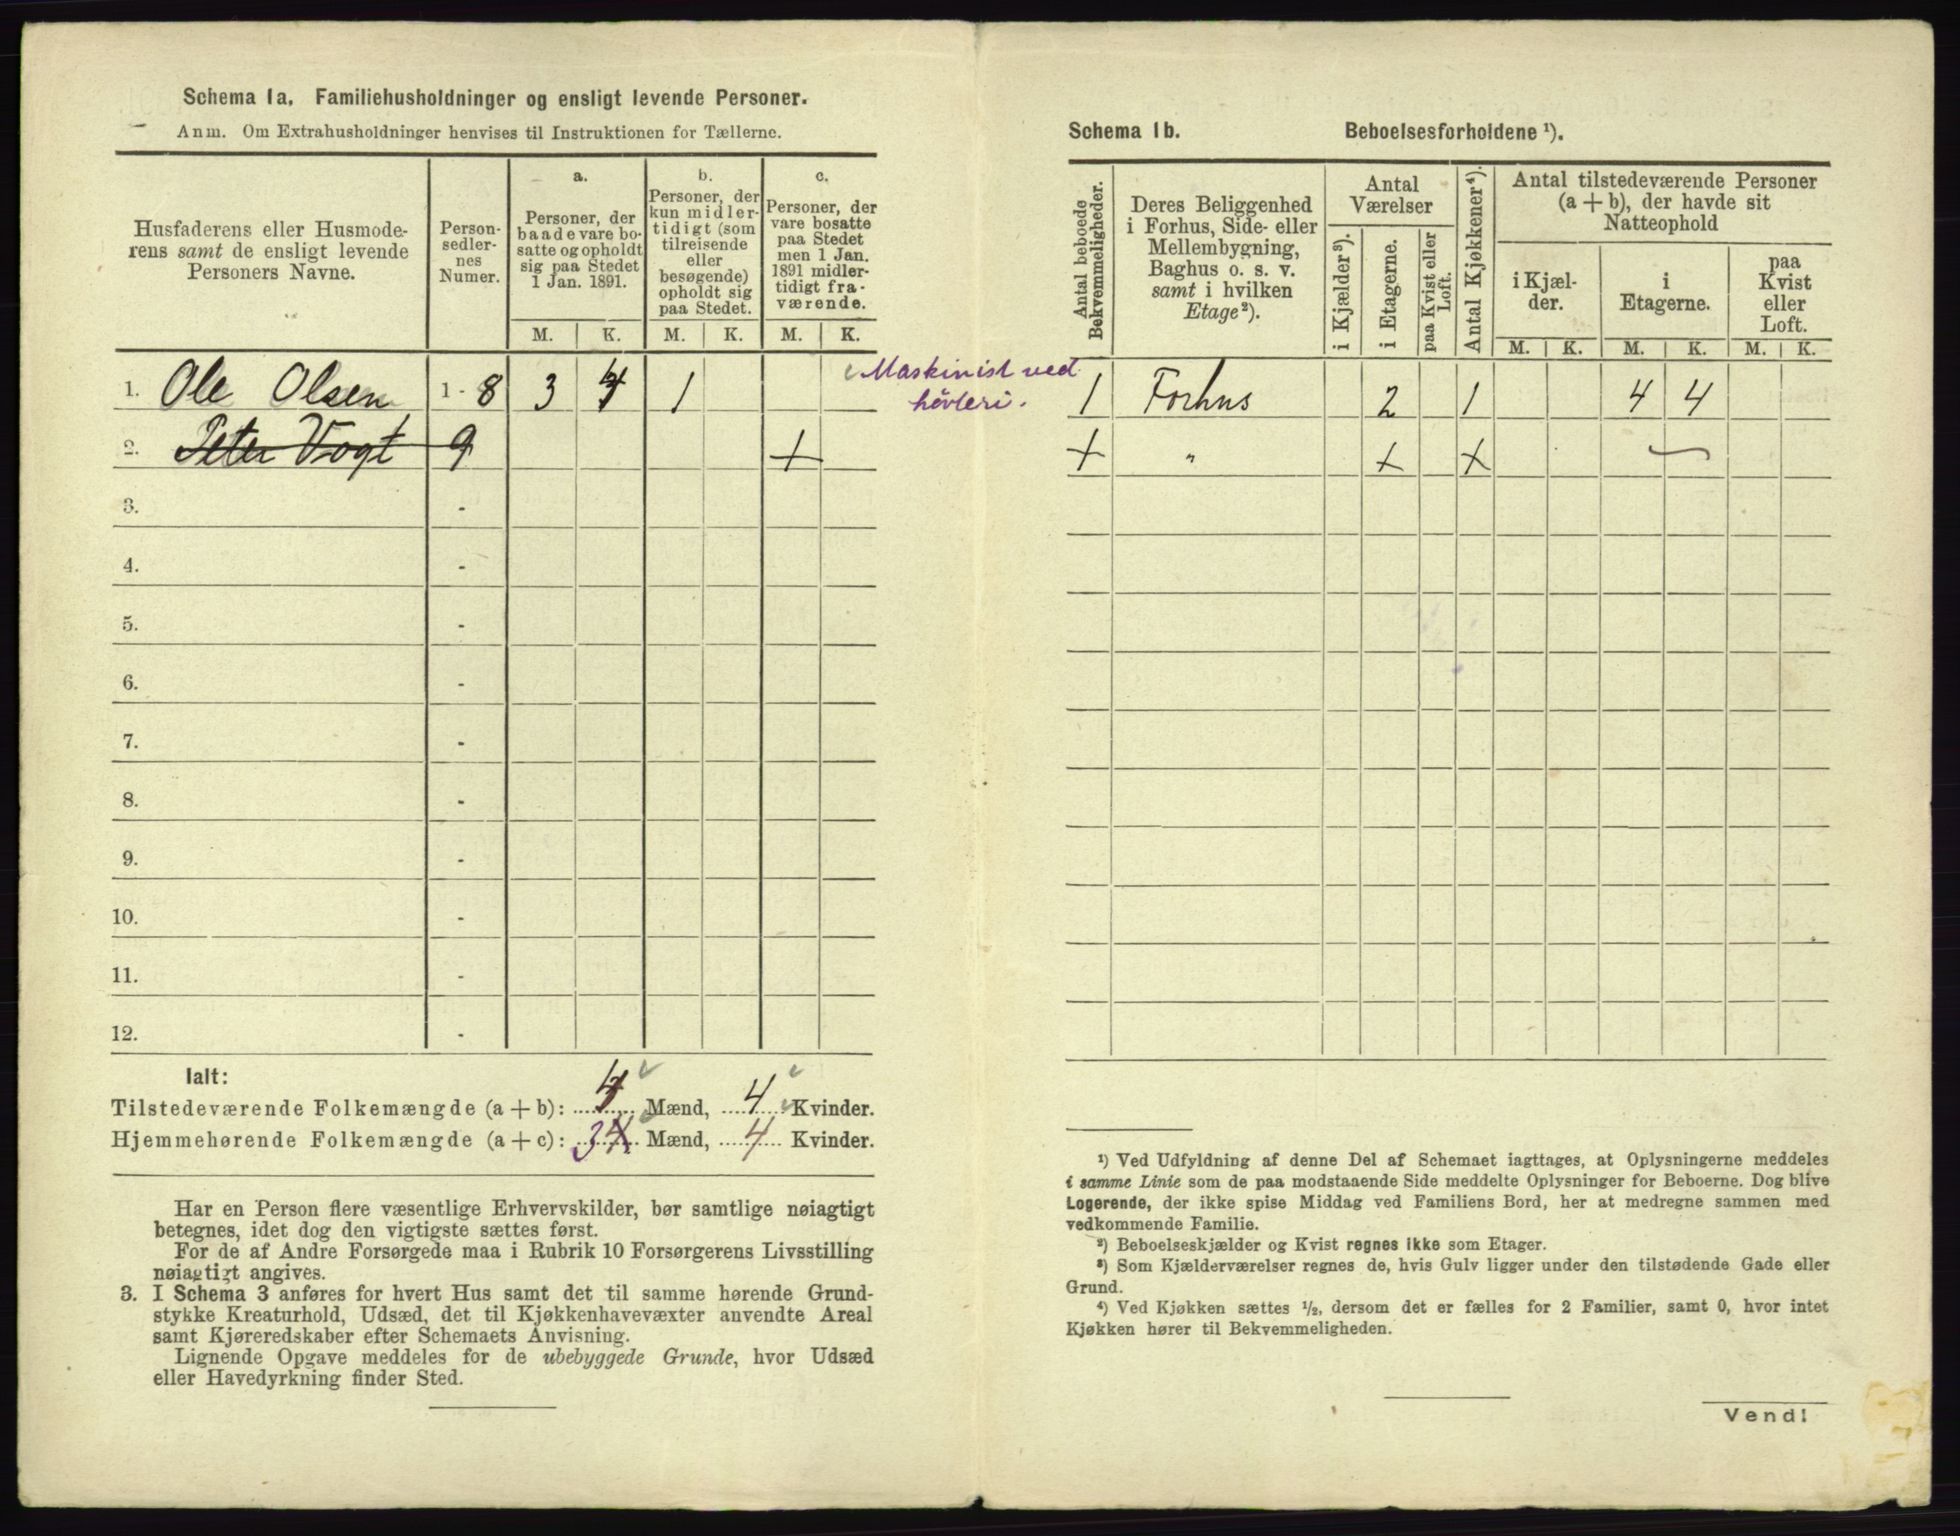 Schema 1a. Familiehusholdninger og ensligt levende Personer.
Anm. Om Extrahusholdninger henvises til Instruktionen for Tællerne.
Husfaderens eller Husmode-
rens samt de ensligt levende
Personers Navne.
Person-
sedler-
nes
Numer.
a.
Personer, der
baade vare bo-
satte og opholdt
sig paa Stedet
1 Jan. 1891.
b.
Personer, der
kun midler-
tidigt (som
tilreisende
eller
besøgende)
opholdt sig
paa Stedet.
c.
Personer, der
vare bosatte
paa Stedet
men 1 Jan.
1891 midler-
tidigt fra-
værende.
M. K. M. K. M. K.
1. Ole Olsen 1 - 8 3 4 1
Maskinist ved
høvleri.
2. Peter Vogt 9 +
3. -
4. -
5. -
6. -
7. -
8. -
9. -
10. -
11. -
12. -
Ialt:
Tilstedeværende Folkemængde (a + b): 4 Mænd, 4 Kvinder.
Hjemmehørende Folkemængde (a + c): 3 4 Mænd, 4 Kvinder.
Har en Person flere væsentlige Erhvervskilder, bør samtlige nøiagtigt
betegnes, idet dog den vigtigste sættes først.
For de af Andre Forsørgede maa i Rubrik 10 Forsørgerens Livsstilling
nøiagtigt angives.
3. I Schema 3 anføres for hvert Hus samt det til samme hørende Grund-
stykke Kreaturhold, Udsæd, det til Kjøkkenhavevæxter anvendte Areal
samt Kjøreredskaber efter Schemaets Anvisning.
Lignende Opgave meddeles for de ubebyggede Grunde, hvor Udsæd
eller Havedyrkning finder Sted.
Schema 1b. Beboelsesforholdene ¹).
Antal beboede
Bekvemmeligheder.
Deres Beliggenhed
i Forhus, Side- eller
Mellembygning,
Baghus o. s. v.
samt i hvilken
Etage²).
Antal
Værelser
i Kjælder³).
i Etagerne.
paa Kvist eller
Loft.
Antal Kjøkkener⁴).
Antal tilstedeværende Personer
(a + b), der havde sit
Natteophold
i Kjæl-
der.
i
Etagerne.
paa
Kvist
eller
Loft.
M. K. M. K. M. K.
1 Forhus 2 1 4 4
+ " + +
¹) Ved Udfyldning af denne Del af Schemaet iagttages, at Oplysningerne meddeles
i samme Linie som de paa modstaaende Side meddelte Oplysninger for Beboerne. Dog blive
Logerende, der ikke spise Middag ved Familiens Bord, her at medregne sammen med
vedkommende Familie.
²) Beboelseskjælder og Kvist regnes ikke som Etager.
³) Som Kjælderværelser regnes de, hvis Gulv ligger under den tilstødende Gade eller
Grund.
⁴) Ved Kjøkken sættes ½, dersom det er fælles for 2 Familier, samt 0, hvor intet
Kjøkken hører til Bekvemmeligheden.
Vend!